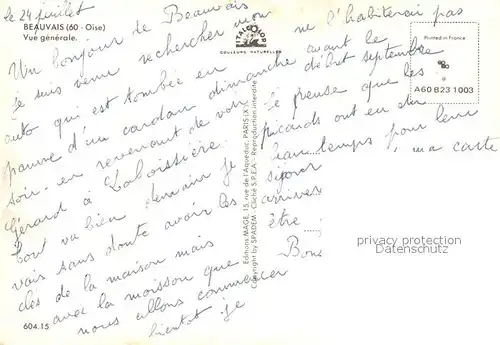 le 24 juillet
BEAUVAIS (60 - Oise)
Vue générale.
Un bonjour de Beauvais
je suis venu rechercher mon
auto qui est tombée en
panne d'un cardan dimanche
soir en revenant de voir
Gérard à Laboissière.
tout va bien demain je
vais sans doute avoir les
clés de la maison mais
avec la moisson que
nous allons commencer
bientôt je
604.15
COULEURS NATURELLES
Editions MAGE, 15, rue de l'Aqueduc, PARIS (X)
Copyright by SPADEM - Cliché S.P.E.A. - Reproduction interdite
ne l'habiterai pas
avant le
début septembre
Je pense que les
picards ont eu du
beau temps pour leur
séjour, ma carte
arrivée
être
Bons
Printed in France
A60 B23 1003
privacy protection
Datenschutz